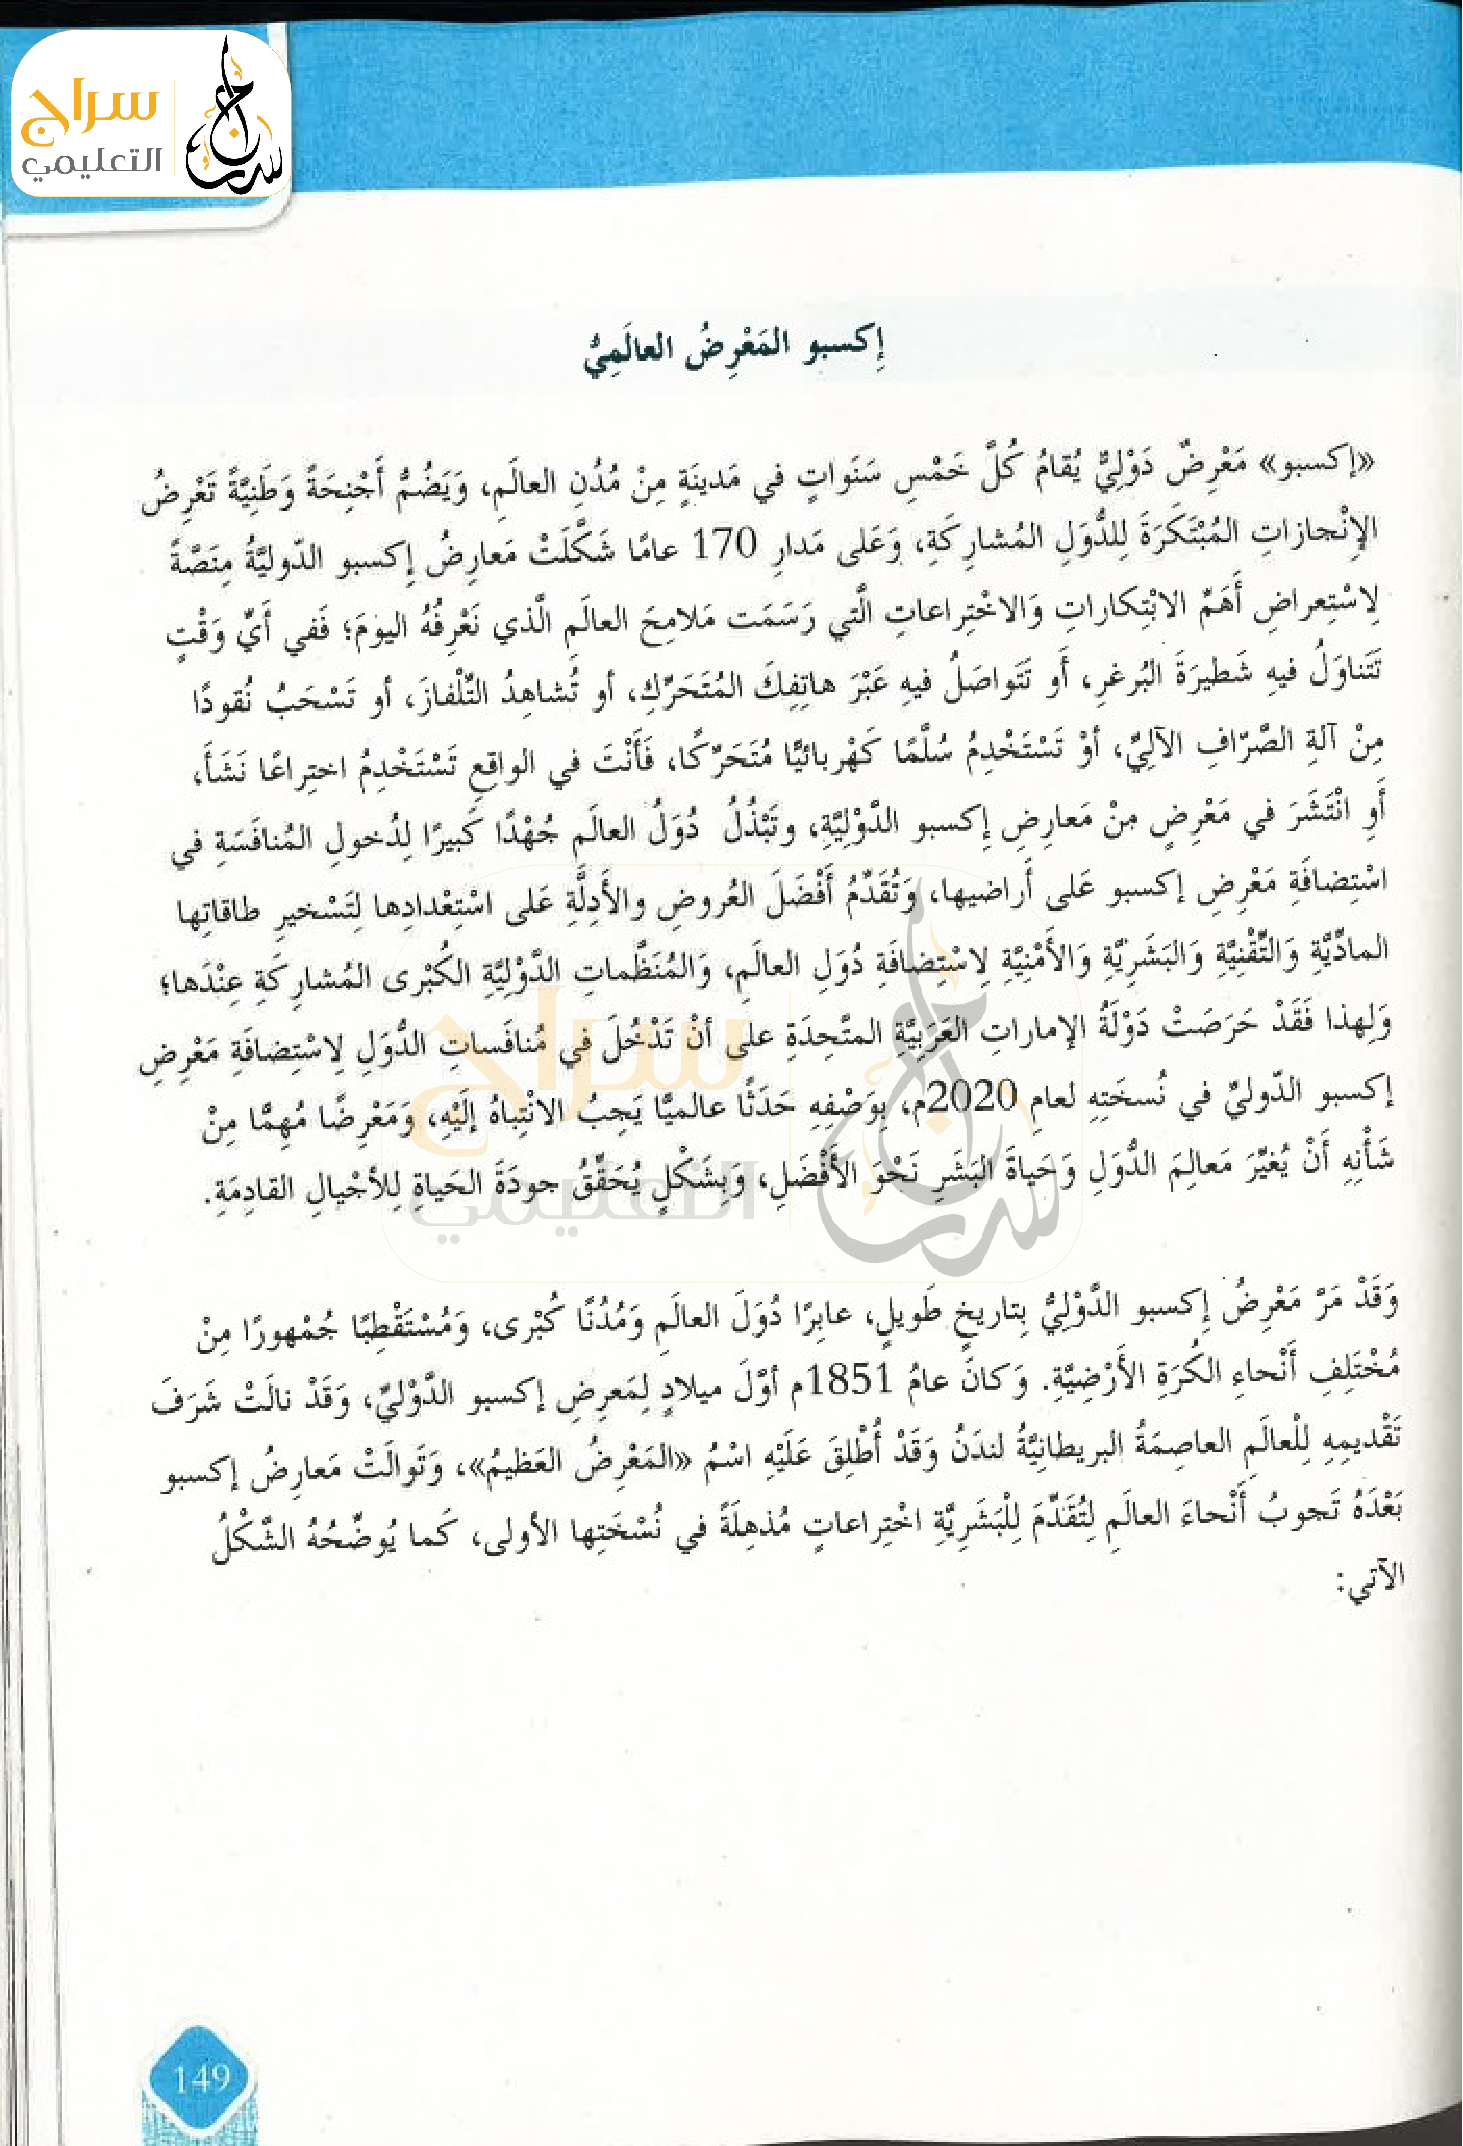 سراج
التعليمي
إكسبو المَعْرِضُ العالَمِيُّ
«إكسبو» مَعْرِضٌ دَوْلِيٌّ يُقامُ كُلَّ خَمْسِ سَنَواتٍ في مَدينَةٍ مِنْ مُدُنِ العالَمِ، وَيَضُمُّ أَجْنِحَةً وَطَنِيَّةً تَعْرِضُ
الإنْجازاتِ المُبْتَكَرَةَ لِلدُّوَلِ المُشارِكَةِ، وَعَلى مَدارِ 170 عامًا شَكَّلَتْ مَعارِضُ إكسبو الدّوليَّةُ مِنَصَّةً
لِاسْتِعراضِ أَهَمِّ الابْتِكاراتِ وَالاخْتِراعاتِ الَّتي رَسَمَت مَلامِحَ العالَمِ الَّذي نَعْرِفُهُ اليومَ؛ فَفي أَيِّ وَقْتٍ
تَتَناوَلُ فيهِ شَطيرَةَ البُرغرِ، أَو تَتَواصَلُ فيهِ عَبْرَ هاتِفِكَ المُتَحَرِّكِ، أو تُشاهِدُ التِّلْفازَ، أو تَسْحَبُ نُقودًا
مِنْ آلةِ الصَّرّافِ الآلِيِّ، أوْ تَسْتَخْدِمُ سُلَّمًا كَهْرَبائيًّا مُتَحَرِّكًا، فَأَنْتَ في الواقعِ تَسْتَخْدِمُ اختِراعًا نَشَأَ،
أَوِ انْتَشَرَ في مَعْرِضٍ مِنْ مَعارِضِ إكسبو الدَّوْلِيَّةِ، وتَبْذُلُ دُوَلُ العالَمِ جُهْدًا كَبيرًا لِدُخولِ المُنافَسَةِ في
اسْتِضافَةِ مَعْرِضِ إكسبو عَلى أَراضيها، وَتُقَدِّمُ أَفْضَلَ العُروضِ والأَدِلَّةِ عَلى اسْتِعْدادِها لِتَسْخيرِ طاقاتِها
المادِّيَّةِ وَالتِّقْنِيَّةِ وَالبَشَرِيَّةِ وَالأَمْنِيَّةِ لِاسْتِضافَةِ دُوَلِ العالَمِ، وَالمُنَظَّماتِ الدَّوْلِيَّةِ الكُبْرى المُشارِكَةِ عِنْدَها؛
وَلِهذا فَقَدْ حَرَصَتْ دَوْلَةُ الإماراتِ العَرَبِيَّةِ المتَّحِدَةِ على أنْ تَدْخُلَ في مُنافَساتِ الدُّوَلِ لِاسْتِضافَةِ مَعْرِضِ
إكسبو الدّوليِّ في نُسخَتِهِ لعامِ 2020م، بِوَصْفِهِ حَدَثًا عالميًّا يَجِبُ الانْتِباهُ إلَيْهِ، وَمَعْرِضًا مُهِمًّا مِنْ
شَأْنِهِ أَنْ يُغيِّرَ مَعالِمَ الدُّوَلِ وَحَياةَ البَشَرِ نَحْوَ الأَفْضَلِ، وَبِشَكْلٍ يُحَقِّقُ جودَةَ الحَياةِ لِلأجْيالِ القادِمَةِ.
وَقَدْ مَرَّ مَعْرِضُ إكسبو الدَّوْلِيُّ بِتاريخٍ طَويلٍ، عابِرًا دُوَلَ العالَمِ وَمُدُنًا كُبْرى، وَمُسْتَقْطِبًا جُمْهورًا مِنْ
مُخْتَلِفِ أَنْحاءِ الكُرَةِ الأَرْضِيَّةِ. وَكانَ عامُ 1851م أوَّلَ ميلادٍ لِمَعرِضِ إكسبو الدَّوْليِّ، وَقَدْ نالَتْ شَرَفَ
تَقْديمِهِ لِلْعالَمِ العاصِمَةُ البريطانِيَّةُ لندَنُ وَقَدْ أُطْلِقَ عَلَيْهِ اسْمُ «المَعْرِضُ العَظيمُ»، وَتَوالَتْ مَعارِضُ إكسبو
بَعْدَهُ تَجوبُ أَنْحاءَ العالَمِ لِتُقَدِّمَ لِلْبَشَرِيَّةِ اخْتِراعاتٍ مُذهِلَةً في نُسْخَتِها الأولى، كَما يُوضِّحُهُ الشَّكْلُ
الآتي:
149